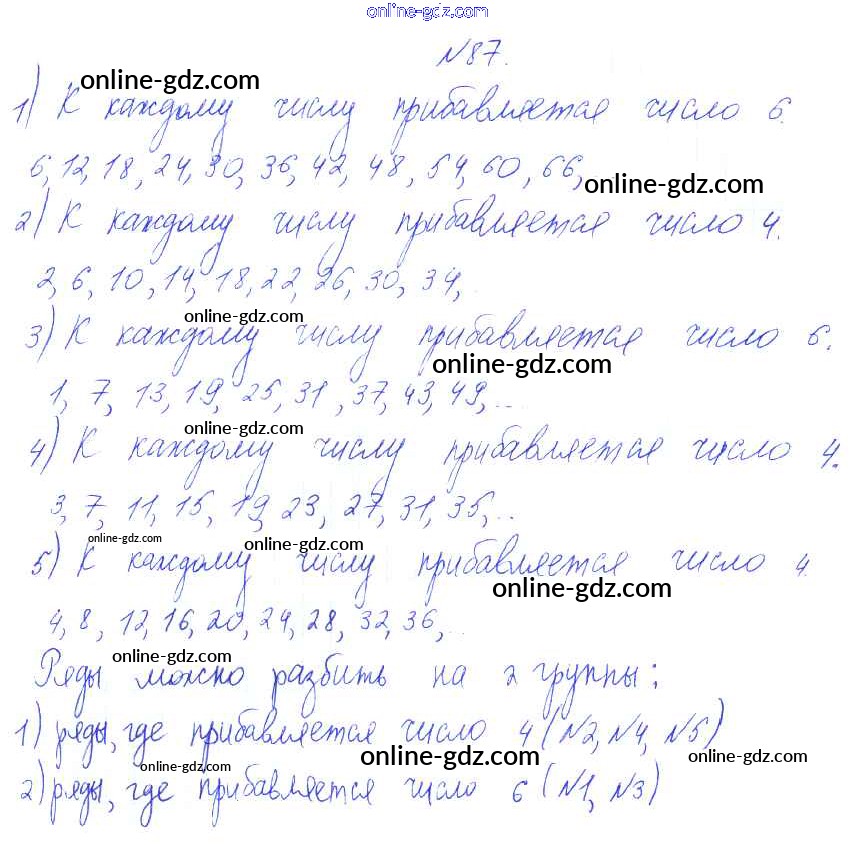 online-gdz.com
№87.
online-gdz.com
1) К каждому числу прибавляется число 6.
6, 12, 18, 24, 30, 36, 42, 48, 54, 60, 66,
online-gdz.com
2) К каждому числу прибавляется число 4.
2, 6, 10, 14, 18, 22, 26, 30, 34, ..
online-gdz.com
3) К каждому числу прибавляется число 6.
online-gdz.com
1, 7, 13, 19, 25, 31, 37, 43, 49, ...
online-gdz.com
4) К каждому числу прибавляется число 4.
3, 7, 11, 15, 19, 23, 27, 31, 35, ..
online-gdz.com
online-gdz.com
5) К каждому числу прибавляется число 4.
online-gdz.com
4, 8, 12, 16, 20, 24, 28, 32, 36, ..
online-gdz.com
Ряды можно разбить на 2 группы:
1) ряды, где прибавляется число 4 (№2, №4, №5)
online-gdz.com
online-gdz.com
online-gdz.com
2) ряды, где прибавляется число 6 (№1, №3)